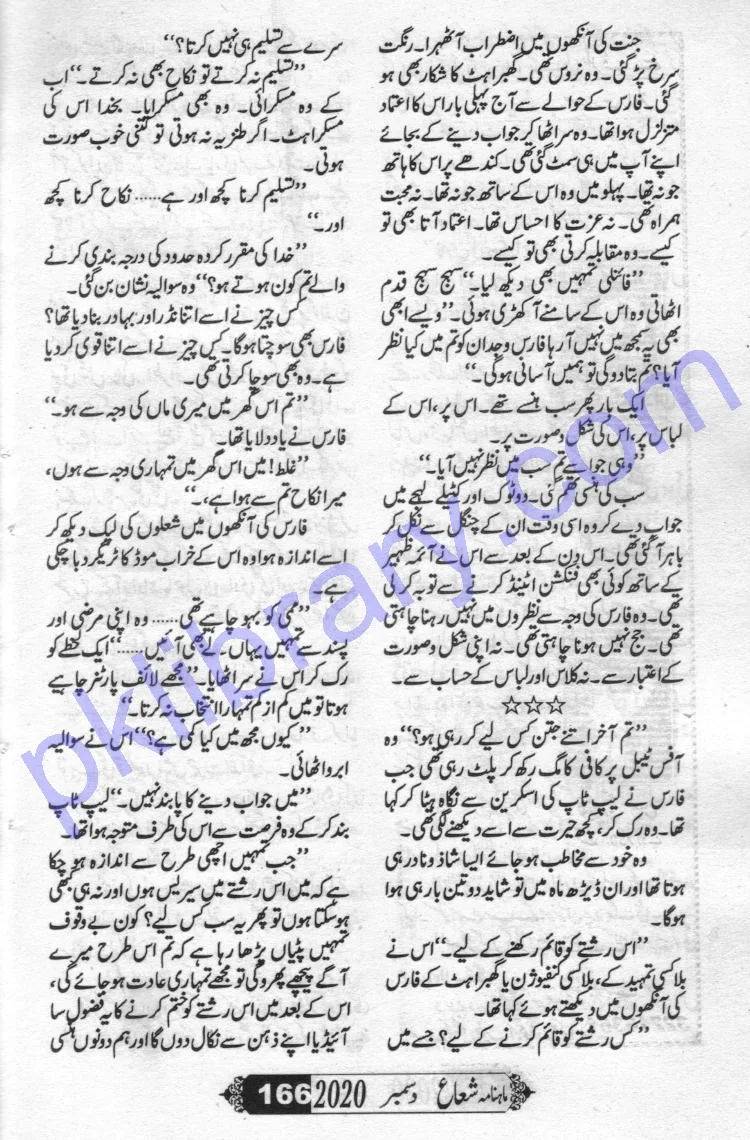 جنت کی آنکھوں میں اضطراب آٹھہرا۔ رنگت
سرخ پڑ گئی۔ وہ نروس تھی۔ گھبراہٹ کا شکار بھی ہو
گئی۔ فارس کے حوالے سے آج پہلی بار اس کا اعتماد
متزلزل ہوا تھا۔ وہ سر اٹھا کر جواب دینے کے بجائے
اپنے آپ میں ہی سمٹ گئی تھی۔ کندھے پر اس کا ہاتھ
جو نہ تھا۔ پہلو میں وہ اس کے ساتھ جو نہ تھا۔ نہ محبت
ہمراہ تھی۔ نہ عزت کا احساس تھا۔ اعتماد آتا بھی تو
کیسے۔ وہ مقابلہ کرتی بھی تو کیسے۔
”فائنلی تمہیں بھی دیکھ لیا۔“ سہج سہج قدم
اٹھاتی وہ اس کے سامنے آ کھڑی ہوئی۔ ”ویسے ابھی
بھی یہ سمجھ میں نہیں آ رہا فارس وجدان کو تم میں کیا نظر
آیا؟ تم بتا دو گی تو ہمیں آسانی ہو گی۔“
ایک بار پھر سب ہنسے تھے۔ اس پر، اس کے
لباس پر، اس کی شکل و صورت پر۔
”وہی جو اسے تم سب میں نظر نہیں آیا۔“
سب کی ہنسی تھم گئی۔ دو ٹوک اور کٹیلے لہجے میں
جواب دے کر وہ اسی وقت ان کے چنگل سے نکل کر
باہر آ گئی تھی۔ اس دن کے بعد سے اس نے آئمہ ظہیر
کے ساتھ کوئی بھی فنکشن اٹینڈ کرنے سے توبہ کر لی
تھی۔ وہ فارس کی وجہ سے نظروں میں نہیں رہنا چاہتی
تھی۔ جج نہیں ہونا چاہتی تھی۔ نہ اپنی شکل و صورت
کے اعتبار سے۔ نہ کلاس اور لباس کے حساب سے۔
☆☆☆
”تم آخر اتنے جتن کس لیے کر رہی ہو؟“ وہ
آفس ٹیبل پر کافی کا مگ رکھ کر پلٹ رہی تھی جب
فارس نے لیپ ٹاپ کی اسکرین سے نگاہ ہٹا کر کہا
تھا۔ وہ رک کر، کچھ حیرت سے اسے دیکھنے لگی تھی۔
وہ خود سے مخاطب ہو جائے ایسا شاذ و نادر ہی
ہوتا تھا اور ان ڈیڑھ ماہ میں تو شاید دو تین بار ہی ہوا
ہو گا۔
”اس رشتے کو قائم رکھنے کے لیے۔“ اس نے
بلا کسی تمہید کے، بلا کسی کنفیوژن یا گھبراہٹ کے فارس
کی آنکھوں میں دیکھتے ہوئے کہا تھا۔
”کس رشتے کو قائم کرنے کے لیے؟ جسے میں
سرے سے تسلیم ہی نہیں کرتا؟“
”تسلیم نہ کرتے تو نکاح بھی نہ کرتے۔“ اب
کے وہ مسکرائی۔ وہ بھی مسکرایا۔ بخدا اس کی
مسکراہٹ۔ اگر طنزیہ نہ ہوتی تو کتنی خوب صورت
ہوتی۔
”تسلیم کرنا کچھ اور ہے...... نکاح کرنا کچھ
اور۔“
”خدا کی مقرر کردہ حدود کی درجہ بندی کرنے
والے تم کون ہوتے ہو؟“ وہ سوالیہ نشان بن گئی۔
کس چیز نے اسے اتنا نڈر اور بہادر بنا دیا تھا؟
فارس بھی سوچتا ہو گا۔ کس چیز نے اسے اتنا قوی کر دیا
ہے۔ وہ بھی سوچا کرتی تھی۔
”تم اس گھر میں میری ماں کی وجہ سے ہو۔“
فارس نے یاد دلایا تھا۔
”غلط! میں اس گھر میں تمہاری وجہ سے ہوں،
میرا نکاح تم سے ہوا ہے،۔“
فارس کی آنکھوں میں شعلوں کی لپک دیکھ کر
اسے اندازہ ہوا وہ اس کے خراب موڈ کا ٹریگر دبا چکی
ہے۔
”ممی کو بہو چاہیے تھی...... وہ اپنی مرضی اور
پسند سے تمہیں یہاں لے بھی آئیں......“ ایک لحظے کو
رک کر اس نے سر اٹھایا۔ ”مجھے لائف پارٹنر چاہیے
ہوتا تو میں کم از کم تمہارا انتخاب نہ کرتا۔“
”کیوں مجھ میں کیا کمی ہے؟“ اس نے سوالیہ
ابرو اٹھائی۔
”میں جواب دینے کا پابند نہیں۔“ لیپ ٹاپ
بند کر کے وہ فرصت سے اس کی طرف متوجہ ہوا تھا۔
”جب تمہیں اچھی طرح سے اندازہ ہو چکا
ہے کہ میں اس رشتے میں سیریس ہوں اور نہ ہی کبھی
ہو سکتا ہوں تو پھر یہ سب کس لیے؟ کون بے وقوف
تمہیں پٹیاں پڑھا رہا ہے کہ تم اس طرح میرے
آگے پیچھے پھرو گی تو مجھے تمہاری عادت ہو جائے گی،
اس کے بعد میں اس رشتے کو ختم کرنے کا یہ فضول سا
آئیڈیا اپنے ذہن سے نکال دوں گا اور ہم دونوں ہنسی
ماہنامہ شعاع دسمبر 2020 166
pklibrary.com